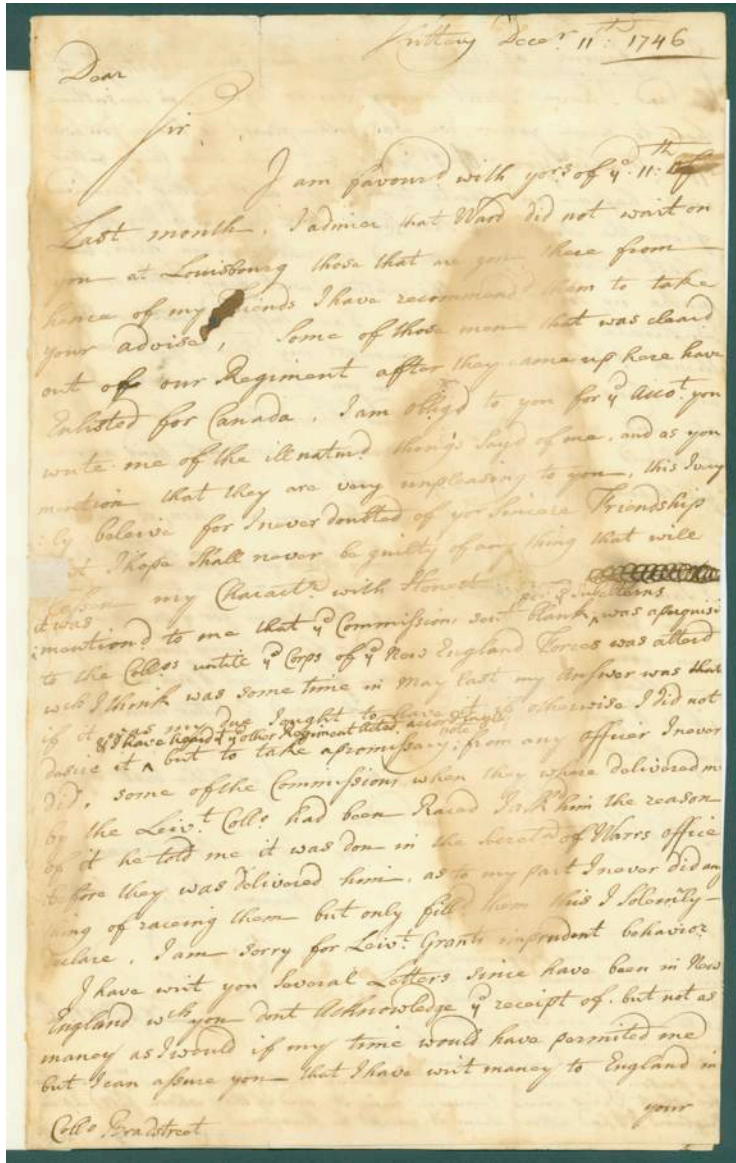 Kittery Decer. 11th: 1746
Dear
Sir
I am favourd with yors of ye. 11:th of
Last month, I admier that Ward did not wait on
you at Louisbourg those that are gon there from
hence of my Friends I have recommend them to take
your advise, Some of those men that was cleard
out of our Regiment after they came up here have
Enlisted for Canada. I am obligd to you for ye Acct. you
write me of the illnaturd things sayd of me, and as you
mention that they are very unpleasing to you, this I very
ly beleive for I never doubted of yor Sincere Friendship
I hope Shall never be guilty of any thing that will
Lessen my Charactr with Honest
it was
mentiond to me that ye Commissions sent blank, was a perquisi
for Subalterns
to the Collos untile ye Corps of ye New England Forces was alterd
wch I think was some time in May Last my Answer was that
if it was my due I ought to have it otherwise I did not
& I have heard ye other Regiment acted accordingly
desire it ^ but to take a promissary note from any officer I never
did, some of the Commissions when they where delivered me
by the Leivt. Collo had been Raced I ask him the reason
of it he told me it was don in the Secretary of Warrs office
before they was delivered him, as to my part I never did any
hing of raceing them but only filld them this I Solemly
eclare, I am sorry for Leivt. Grants imprudent behavior
I have writ you Several Letters since have been in New
England wch you dont Acknowledge ye receipt of, but not as
maney as I would if my time would have permited me
but I can assure you that I have writ maney to England in
your
Collo Bradstreet